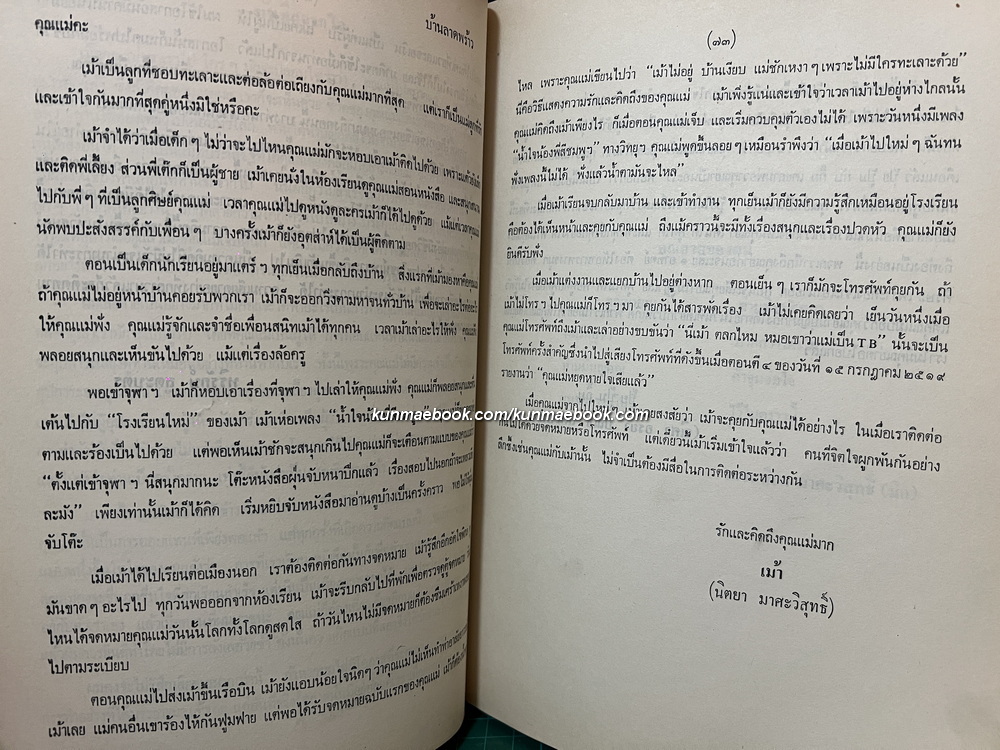 บ้านลาดพร้าว
คุณแม่คะ
เม้าเป็นลูกที่ชอบทะเลาะและต่อล้อต่อเถียงกับคุณแม่มากที่สุด แต่เราก็เป็นแม่ลูกที่รัก
และเข้าใจกันมากที่สุดคู่หนึ่งมิใช่หรือคะ
เม้าจำได้ว่าเมื่อเด็กๆ ไม่ว่าจะไปไหนคุณแม่มักจะหอบเอาเม้าติดไปด้วย เพราะ
และติดพี่เลี้ยง ส่วนพี่เต๊กก็เป็นผู้ชาย เม้าเคยนั่งในห้องเรียนดูคุณแม่สอนหนังสือ และสนุกสนาน
ไปกับพี่ๆ ที่เป็นลูกศิษย์คุณแม่ เวลาคุณแม่ไปดูหนังดูละครเม้าก็ได้ไปดูด้วย แม้แต่เวลาคุณแม่
นัดพบปะสังสรรค์กับเพื่อนๆ บางครั้งเม้าก็ยังอุตส่าห์ได้เป็นผู้ติดตาม
ตอนเป็นเด็กนักเรียนอยู่มาแตร์ฯ ทุกเย็นเมื่อกลับถึงบ้าน สิ่งแรกที่เม้ามองหาคือคุณแม่
ถ้าคุณแม่ไม่อยู่หน้าบ้านคอยรับพวกเรา เม้าก็จะออกวิ่งตามหาจนทั่วบ้าน เพื่อจะเล่าอะไรต่ออะไร
ให้คุณแม่ฟัง คุณแม่รู้จักและจำชื่อเพื่อนสนิทเม้าได้ทุกคน เวลาเม้าเล่าอะไรให้ฟัง คุณแม่ก็
พลอยสนุกและเห็นขันไปด้วย แม้แต่เรื่องล้อครู
พอเข้าจุฬาฯ เม้าก็หอบเอาเรื่องที่จุฬาฯ ไปเล่าให้คุณแม่ฟัง คุณแม่ก็พลอยสนุกและตื่น
เต้นไปกับ “โรงเรียนใหม่” ของเม้า เม้าเห่อเพลง “น้ำใจน้องพี่สีชมพู”
ตามและร้องเป็นไปด้วย แต่พอเห็นเม้าชักจะสนุกเกินไปคุณแม่ก็จะเตือนตามแบบของคุณแม่
“ตั้งแต่เข้าจุฬาฯ นี่สนุกมากนะ โต๊ะหนังสือฝุ่นจับหนาปึกแล้ว เรื่องสอบไปนอกก็จะ
ละมัง” เพียงเท่านั้นเม้าก็ได้คิด เริ่มหยิบจับหนังสือมาอ่านดูบ้างเป็นครั้งคราว พอไม่ให้ฝุ่น
จับโต๊ะ
เมื่อเม้าได้ไปเรียนต่อเมืองนอก เราต้องติดต่อกันทางจดหมาย เม้ารู้สึกอึกอัดใจ
มันขาดๆ อะไรไป ทุกวันพอออกจากห้องเรียน เม้าจะรีบกลับไปที่พักเพื่อตรวจดูตู้จดหมาย วัน
ไหนได้จดหมายคุณแม่วันนั้นโลกทั้งโลกดูสดใส ถ้าวันไหนไม่มีจดหมายก็ต้องซึมเศร้า
ไปตามระเบียบ
ตอนคุณแม่ไปส่งเม้าขึ้นเรือบิน เม้ายังแอบน้อยใจนิดๆ ว่าคุณแม่ไม่เห็นทำท่าอาลัย
เม้าเลย แม่คนอื่นเขาร้องไห้กันฟูมฟาย แต่พอได้รับจดหมายฉบับแรกของคุณแม่ เม้าก็
(๗๓)
ไหล เพราะคุณแม่เขียนไปว่า “เม้าไม่อยู่ บ้านเงียบ แม่ชักเหงาๆ เพราะไม่มีใครทะเลาะด้วย”
นี่คือวิธีแสดงความรักและคิดถึงของคุณแม่ เม้าเพิ่งรู้แน่และเข้าใจว่าเวลาเม้าไปอยู่ห่างไกลนั้น
คุณแม่คิดถึงเม้าเพียงไร ก็เมื่อตอนคุณแม่เจ็บ และเริ่มควบคุมตัวเองไม่ได้ เพราะวันหนึ่งมีเพลง
“น้ำใจน้องพี่สีชมพูฯ” ทางวิทยุฯ คุณแม่พูดขึ้นลอยๆ เหมือนรำพึงว่า “เมื่อเม้าไปใหม่ๆ ฉันทน
ฟังเพลงนี้ไม่ได้ ฟังแล้วน้ำตามันจะไหล”
เมื่อเม้าเรียนจบกลับมาบ้าน และเข้าทำงาน ทุกเย็นเม้าก็ยังมีความรู้สึกเหมือนอยู่โรงเรียน
คือต้องได้เห็นหน้าและคุยกับคุณแม่ ถึงแม้คราวนี้จะมีทั้งเรื่องสนุกและเรื่องปวดหัว คุณแม่ก็ยัง
ยินดีรับฟัง
เมื่อเม้าแต่งงานและแยกบ้านไปอยู่ต่างหาก ตอนเย็นๆ เราก็มักจะโทรศัพท์คุยกัน ถ้า
เม้าไม่โทรฯ ไปคุณแม่ก็โทรฯ มา คุยกันได้สารพัดเรื่อง เม้าไม่เคยคิดเลยว่า เย็นวันหนึ่งเมื่อ
คุณแม่โทรศัพท์ถึงเม้าและเล่าอย่างขบขันว่า “นี่เม้า ตลกไหม หมอเขาว่าแม่เป็น TB” นั้นจะเป็น
โทรศัพท์ครั้งสำคัญซึ่งนำไปสู่เสียงโทรศัพท์ที่ดังขึ้นเมื่อตอนตี ๔ ของวันที่ ๑๕ กรกฎาคม ๒๕๑๙
รายงานว่า “คุณแม่หยุดหายใจเสียแล้ว”
เมื่อคุณแม่จากไปใหม่ๆ สงสัยว่า เม้าจะคุยกับคุณแม่ได้อย่างไร ในเมื่อเราติดต่อ
กันไม่ได้ด้วยจดหมายหรือโทรศัพท์ แต่เดี๋ยวนี้เม้าเริ่มเข้าใจแล้วว่า คนที่จิตใจผูกพันกันอย่าง
ลึกซึ้งเช่นคุณแม่กับเม้านั้น ไม่จำเป็นต้องมีสื่อในการติดต่อระหว่างกัน
รักและคิดถึงคุณแม่มาก
เม้า
(นิตยา มาศะวิสุทธิ์)
kunmaebook.com/kunmaebook.com